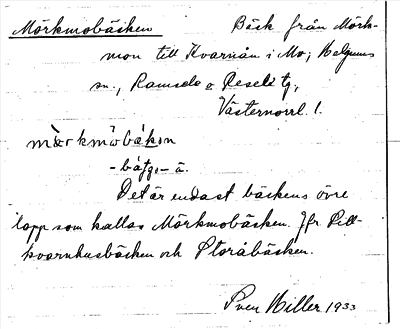 Mörkmobäcken Bäck från Mörk-
mon till Kvarnån i Mo; Helgums
sn., Ramsele o Resele tg,
Västernorrl. l.
mörkmobäkən
Det är endast bäckens övre
lopp som kallas Mörkmobäcken. Jfr Pell-
kvarnhusbäcken och Storåbäcken.
Sven Hiller 1933